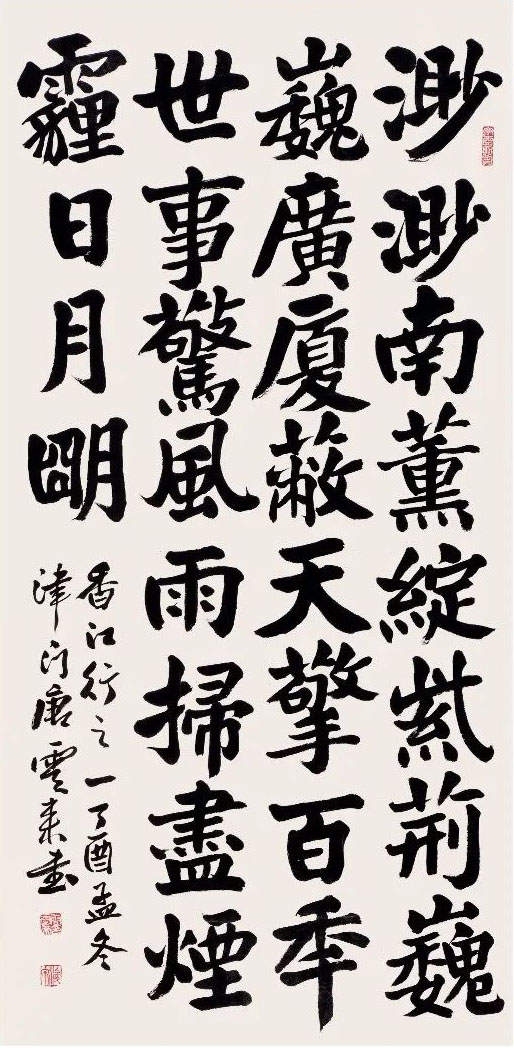 渺渺南薰綻紫荊巍
巍廣廈蔽天擎百年
世事驚風雨掃盡煙
霾日月明
香江行之一丁酉孟冬
津門唐雲来書